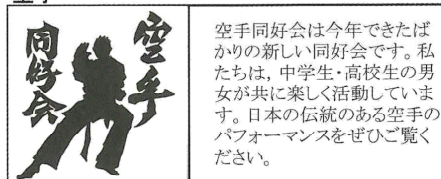 空手
同好会
空手同好会は今年できたば
かりの新しい同好会です。私
たちは，中学生・高校生の男
女が共に楽しく活動していま
す。日本の伝統のある空手の
パフォーマンスをぜひご覧く
ださい。